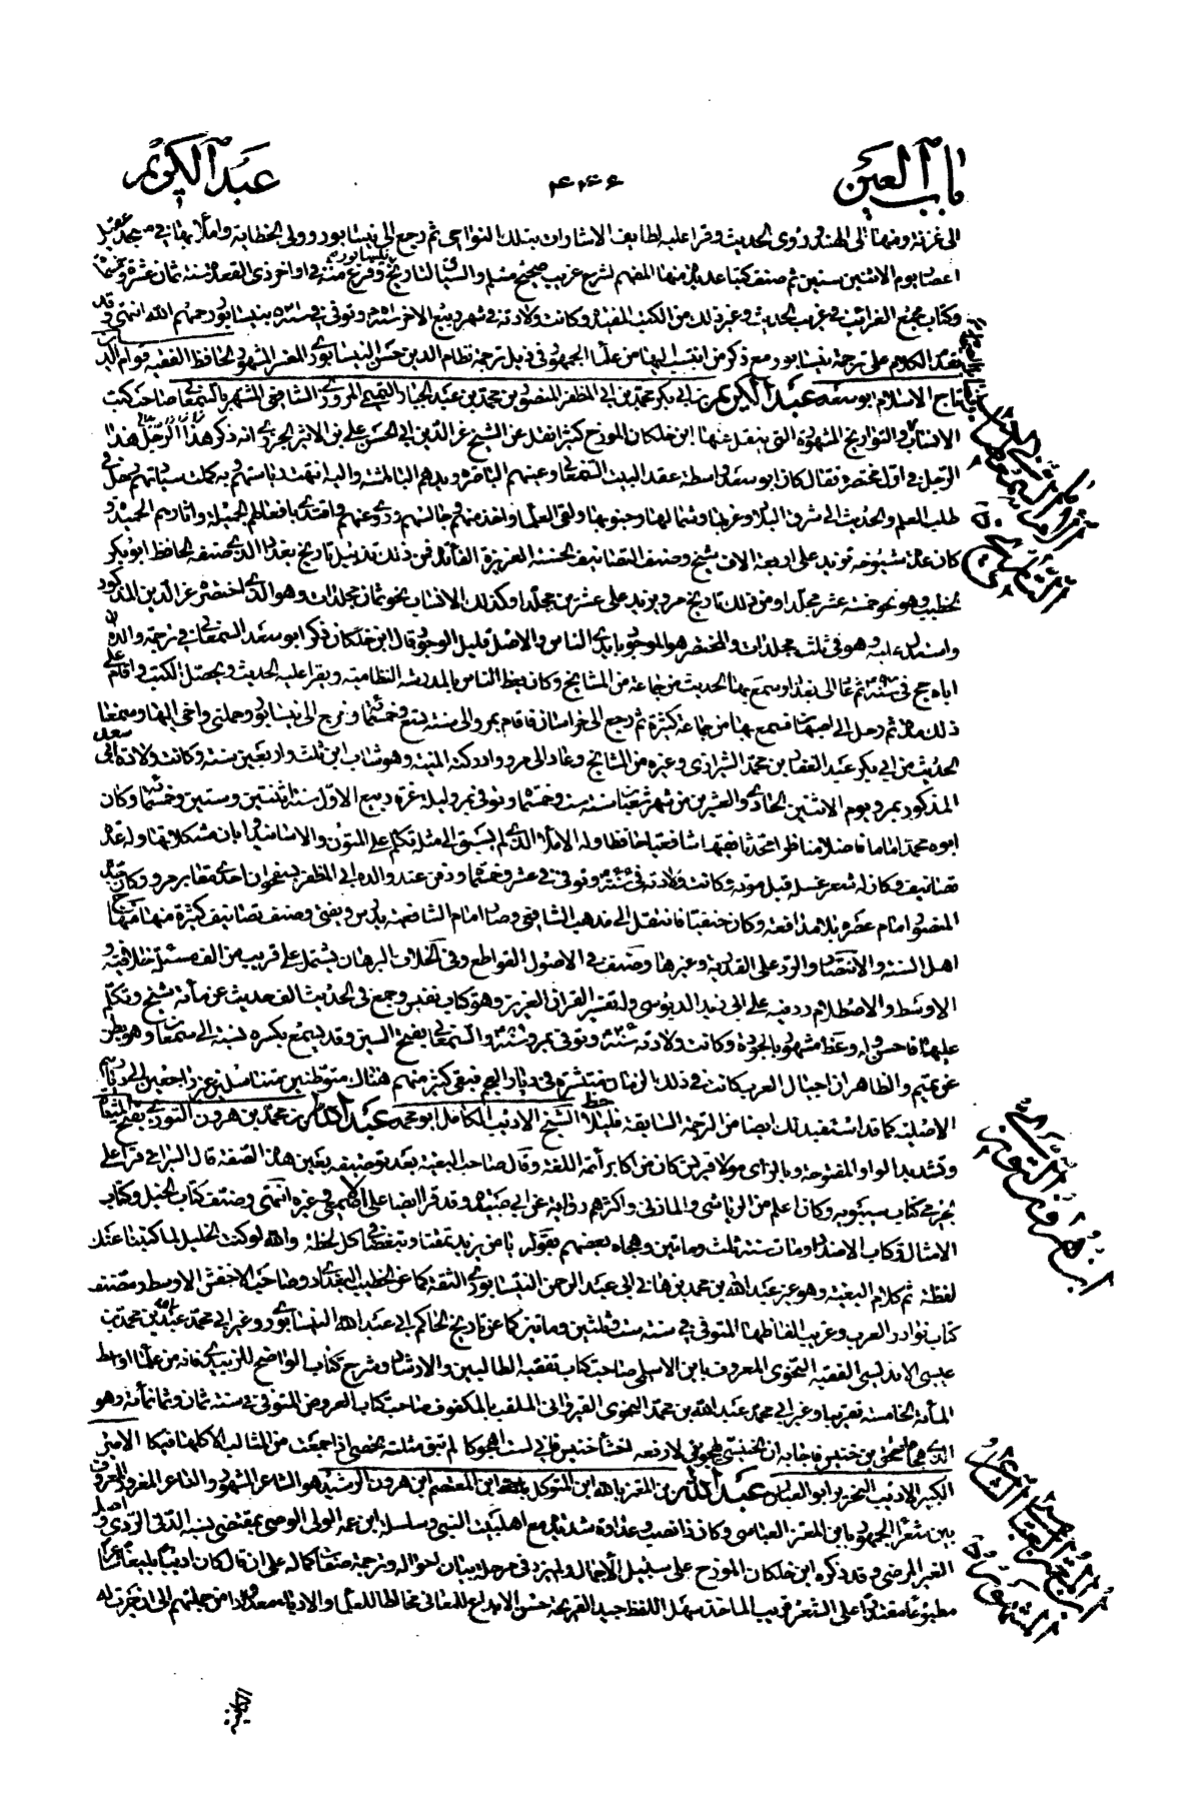 باب العين
۴۴۶
عبد الكريم
الى غزنة ومنها الى الهند وروى الحديث وقرأ عليه لطايف الاشارات بتلك النواحي ثم رجع الى نيسابور وولى الخطابة واملا بها في مسجد عقيل
اعصار يوم الاثنين سنين ثم صنف كتبا عديدة منها المفهم لشرح غريب صحيح مسلم والسياق لتاريخ نيسابور وفرغ منه في اواخر ذي القعدة سنة ثمان عشرة وخمسمائة
وكتاب مجمع الغرائب في غريب الحديث وغير ذلك من الكتب المفيدة وكانت ولادته في شهر ربيع الاخر سنة وتوفي في سنة بنيسابور رحمهم الله انتهى وقد
تقدم الكلام على ترجمة نيسابور مع ذكر من انتسب اليها من علماء الجمهور في ذيل ترجمة نظام الدين حسن النيسابوري المفسر المشهور الحافظ الفقيه قوام الدين
تاج الاسلام ابو سعد عبد الكريم بن ابي بكر محمد بن ابي المظفر المنصور بن محمد بن عبد الجبار التميمي المروزي الشافعي المشهور بالسمعاني صاحب كتب
الانساب والتواريخ المشهورة التي ينقل عنها ابن خلكان المورخ كثيرا نقل عن الشيخ عز الدين ابي الحسن علي بن الاثير الجزري انه ذكر هذا الرجل هذا
الرجل في اول مختصره فقال كان ابو سعد واسطة عقد البيت السمعاني وعينهم الباصرة ويدهم الناصرة واليه انتهت رياستهم وبه كملت سيادتهم رحل في
طلب العلم والحديث الى شرق البلاد وغربها وشمالها وجنوبها ولقى العلماء واخذ منهم وجالسهم وروى عنهم واقتدى بافعالهم الجميلة واثارهم الحميدة و
كان عدة شيوخه تزيد على اربعة الاف شيخ وصنف التصانيف الحسنة العزيزة الفائدة فمن ذلك تذييل تاريخ بغداد الذي صنفه الحافظ ابو بكر
الخطيب وهو نحو خمسة عشر مجلدا ومن ذلك تاريخ مرو يزيد على عشرين مجلدا وكذلك الانساب نحو ثمان مجلدات وهو الذي اختصره عز الدين المذكور
واستدرك عليه وهو في ثلث مجلدات والمختصر هو الموجود بايدي الناس والاصل قليل الوجود قال ابن خلكان ذكر ابو سعد السمعاني في ترجمة والده ان
اباه حج في سنة ثم عاد الى بغداد وسمع بها الحديث من جماعة من المشايخ وكان يعظ الناس بالمدرسة النظامية ويقرأ عليه الحديث ويحصل الكتب واقام على
ذلك مدة ثم رحل الى اصبهان فسمع بها من جماعة كثيرة ثم رجع الى خراسان فاقام بمرو الى سنة تسع وخمسمائة وخرج الى نيسابور وحملني واخي اليها وسمعنا
الحديث من ابي بكر عبد الغفار بن محمد الشيرازي وغيره من المشايخ وعاد الى مرو وادركته المنية وهو شاب ابن ثلث واربعين سنة وكانت ولادة ابي سعد
المذكور بمرو يوم الاثنين الحادي والعشرين من شهر شعبان سنة ست وخمسمائة وتوفي بمرو ليلة غرة ربيع الاول سنة اثنتين وستين وخمسمائة وكان
ابوه محمد اماما فاضلا مناظرا محدثا فقيها شافعيا حافظا وله الاملاء الذي لم يسبق الى مثله تكلم على المتون والاسانيد وابان مشكلاتها وله عدة
تصانيف وكان له شعر غسل قبل موته وكانت ولادته في سنة وتوفي في عشر وخمسمائة ودفن عند والده ابي المظفر بسفحوان احدى مقابر مرو وكان جده
المنصور امام عصره بلا مدافعة وكان حنفيا فانتقل الى مذهب الشافعي وصار امام الشافعية يدرس ويفتي وصنف تصانيف كثيرة منها منهاج
اهل السنة والانتصار والرد على القدرية وغيرها وصنف في الاصول القواطع وفي الخلاف البرهان يشتمل على قريب من الف مسئلة خلافية و
الاوسط والاصطلام رد فيه على ابي زيد الدبوسي وله تفسير القرآن العزيز وهو كتاب نفيس وجمع في الحديث الف حديث عن مأة شيخ وتكلم
عليها فاحسن وله وعظ مشهور بالجودة وكانت ولادته سنة وتوفي بمرو سنة والسمعاني بفتح السين وقد يسمع بكسره نسبة الى سمعان وهو بطن
من تميم والظاهر ان اجبال العرب كانت في ذلك الزمان منتشرة في ديار العجم فبقى كثير منهم هناك متوطنين متناسلين غير راجعين الى ديارهم
الاصلية كما قد استفيد لك ايضا من الترجمة السابقة قليلا الشيخ الاديب الكامل ابو محمد عبد الله بن محمد بن هرون التوزي بفتح المثناة
وتشديد الواو المفتوحة وبالزاى مولا قريش كان من اكابر ائمة اللغة وقال صاحب البغية بعد توصيفه بعين هذه الصفة قال السيرافي قرأ على
الجرمي كتاب سيبويه وكان اعلم من الرياشي والمازني واكثرهم رواية عن ابي عبيدة وقد قرأ ايضا على الاصمعي وغيره انتهى وصنف كتاب الخيل وكتاب
الامثال وكتاب الاضداد ومات سنة ثلث وماتين وهجاه بعضهم بقوله يا من يزيد تمقتا وتبغضا كل لحظة والله لو كنت الخليل لما كتبنا عنك
لفظة ثم كلام البغية وهو غير عبد الله بن محمد بن هاني ابي عبد الرحمن النيسابوري الثقة كما عن الخطيب البغدادي وصاحب الاخفش الاوسط ومصنف
كتاب نوادر العرب وغريب الفاظها المتوفى في سنة ست وثلثين وماتين كما عن تاريخ الحاكم ابي عبد الله النيسابوري وغير ابي محمد عبد الله بن محمد بن
عيسى الاندلسي الفقيه النحوي المعروف بابن الاسلمي صاحب كتاب تفقيه الطالبين والارشاد وشرح كتاب الواضح للزبيدي فانه من علماء اواسط
المأة الخامسة تقريبا وغير ابي محمد عبد الله بن محمد النحوي القيرواني الملقب بالمكفوف صاحب كتاب العروض المتوفى في سنة ثمان وثلثمائة وهو
الذي هجاه اسحق بن خنيس فاجابه ان الخنيسي يهجوني لارفعه اخسأ خنيس فاني لست اهجوكا لم تبق مثلبة تحصى اذا جمعت من المثالب الا كلها فيكا الامير
الكبير الاديب النحرير ابو العباس عبد الله بن المعتز بالله ابن المتوكل بالله ابن المعتصم ابن هرون الرشيد هو الشاعر المشهور والناعر المغرور المعروف
بين شعراء الجمهور بابن المعتز العباسي وكان ذا نصب وعداوة شديدة مع اهل بيت النبي وسلسلة ابن عمه الولي الوصي بمقتضى نسبه الدني الردي واصله
الغير المرضي وقد ذكره ابن خلكان المورخ على سبيل الاجمال ولم يزد في مرحلة بيان احواله وترجمة صفات كماله على ان قال كان اديبا بليغا شاعرا
مطبوعا مقتدرا على الشعر قريب الماخذ سهل اللفظ جيد القريحة حسن الابداع للمعاني مخالطا للعلماء والادباء معدودا من جملتهم الى ان جرت له
ابن هرون التوزي
ابن المعتز العباسي الشاعر المشهور
الكاينة